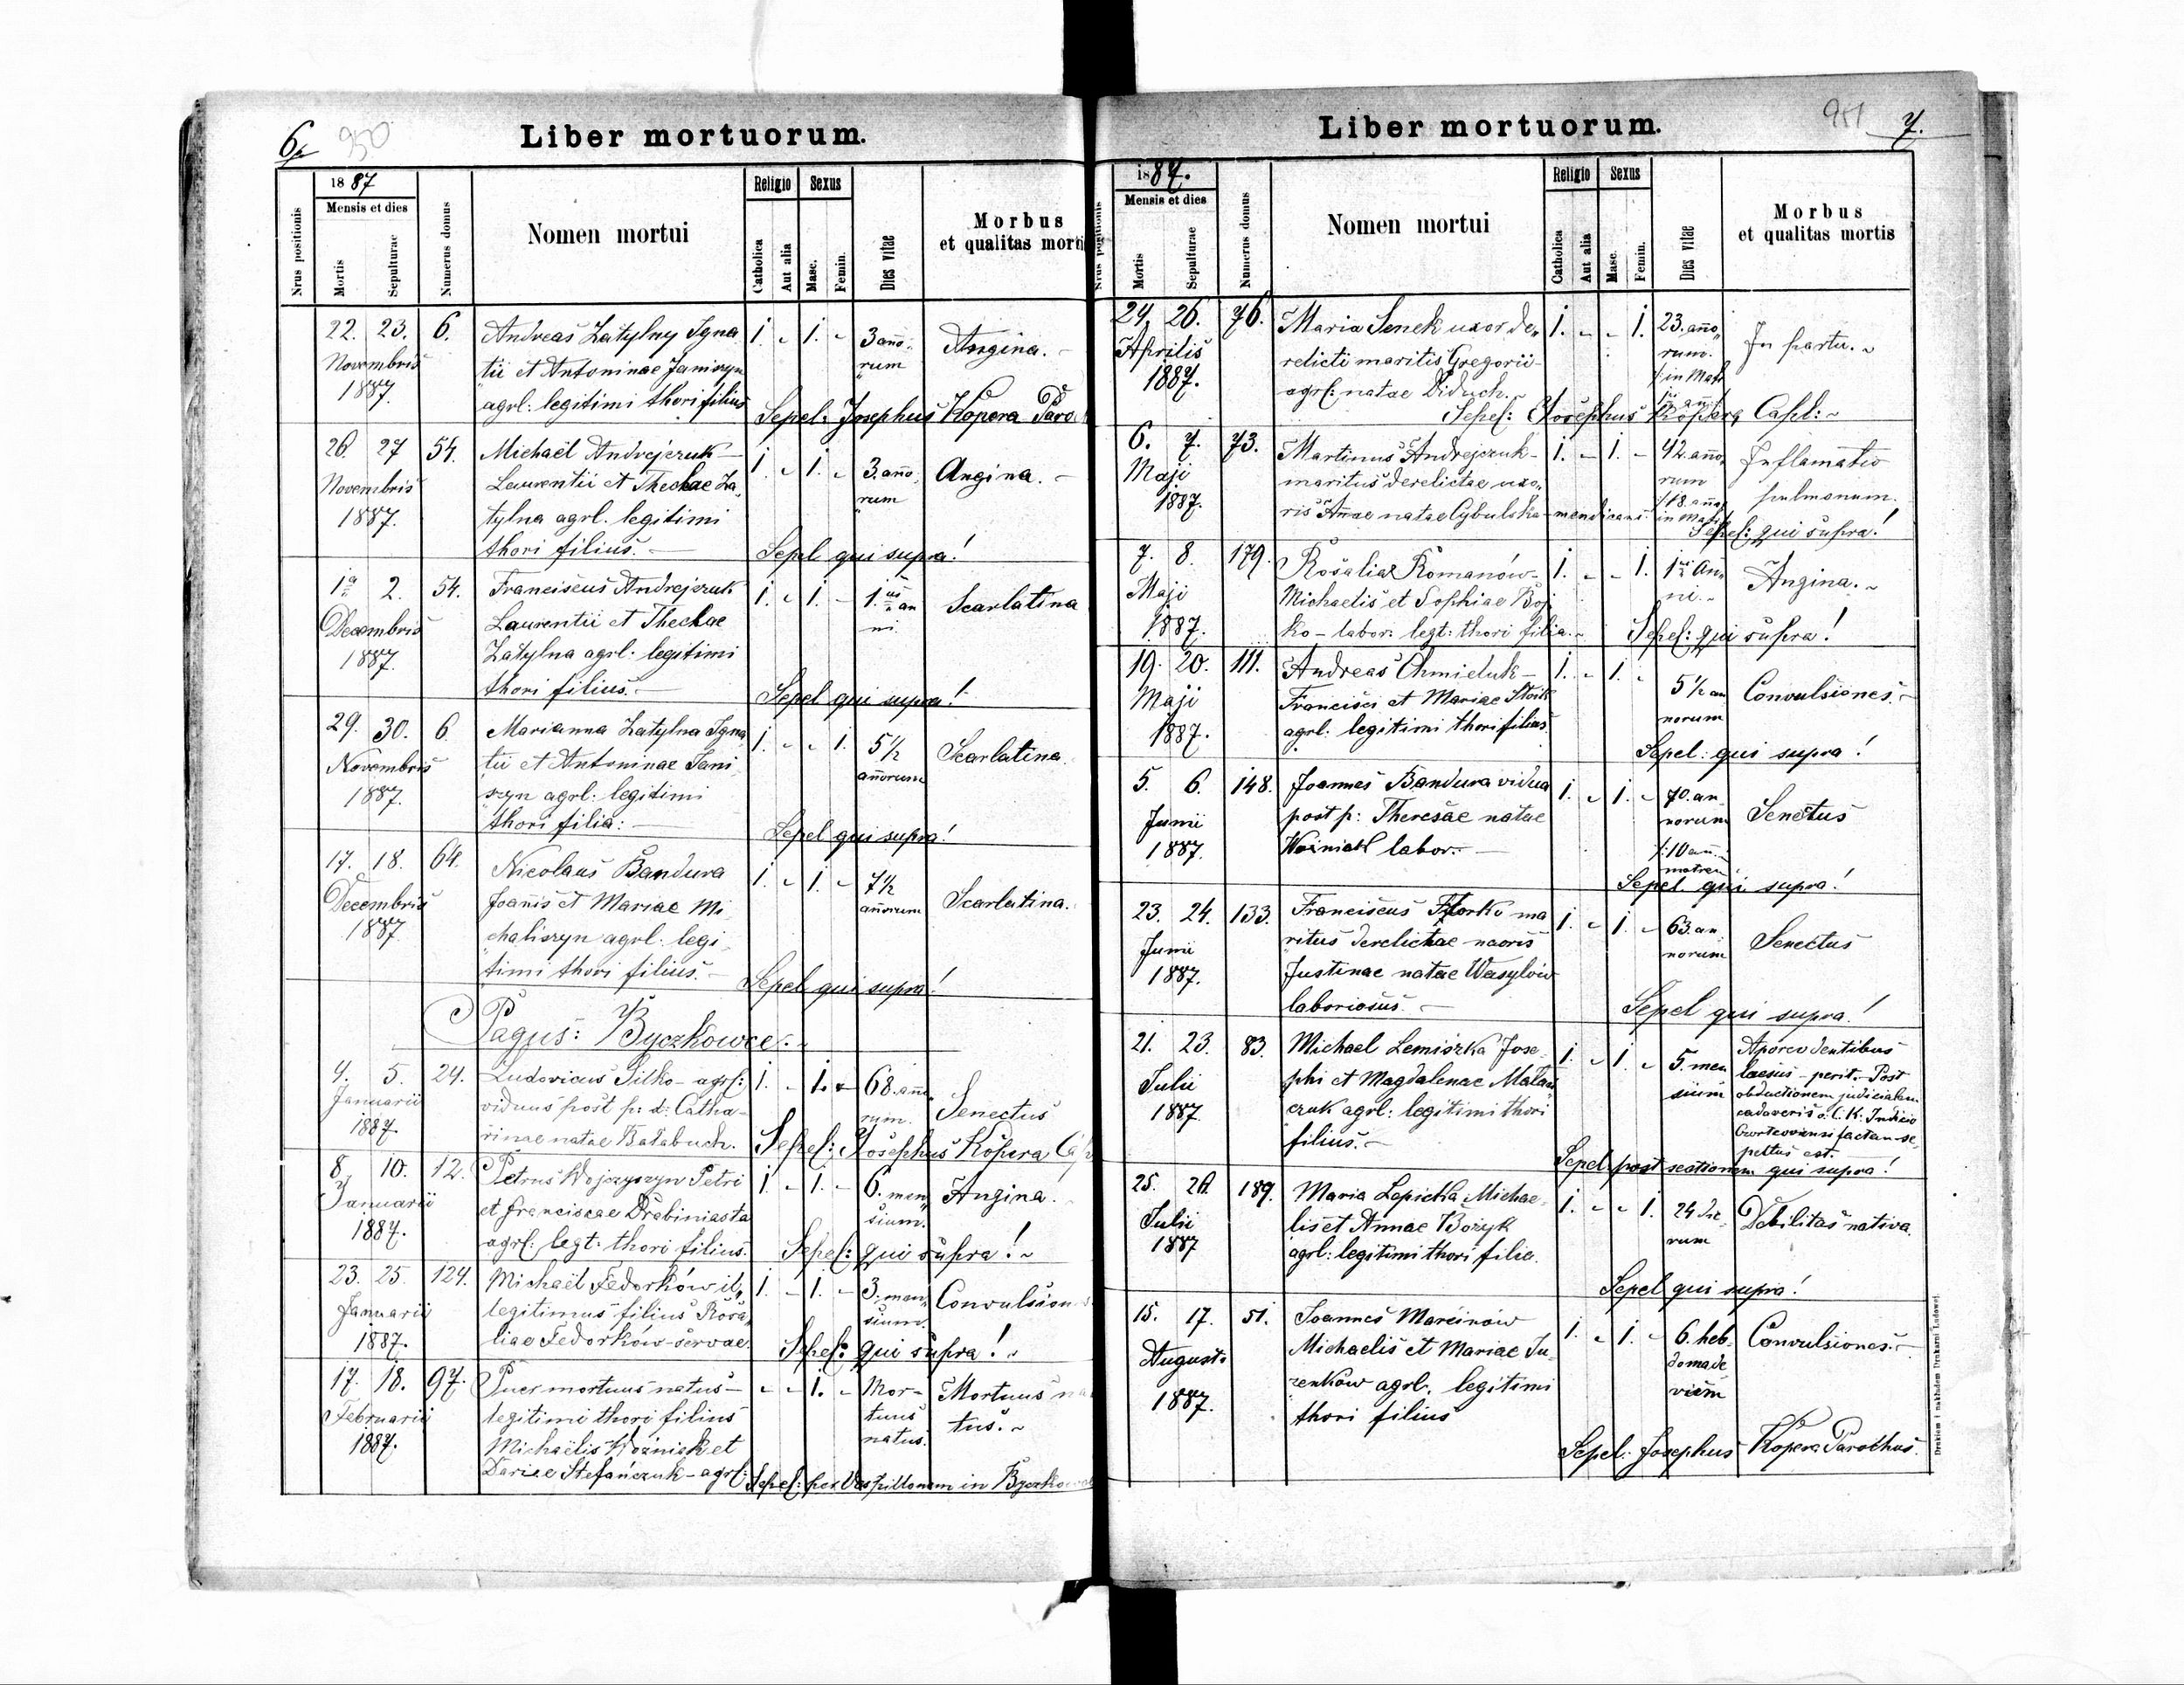 6
950
Liber mortuorum.
1887
Mensis et dies
Nrus positionis
Mortis
Sepulturae
Numerus domus
Nomen mortui
Religio
Sexus
Catholica
Aut alia
Masc.
Femin.
Dies vitae
Morbus
et qualitas morti
22. 23. 6.
Novembris
1887.
Andreas Zatylny Igna
tii et Antoninae Janiszyn
agrl: legitimi thori filius
1. - 1. -
3 anno-
rum
Angina. -
Sepel: Josephus Kopera Paro
26. 27 54.
Novembris
1887.
Michaël Andrejczuk -
Laurentii et Theclae Za
tylna agrl. legitimi
thori filius. -
1. - 1. -
3. anno
rum
Angina. -
Sepel qui supra!
1a 2. 54.
Decembris
1887.
Franciscus Andrejczuk
Laurentii et Theclae
Zatylna agrl: legitimi
thori filius. -
1. - 1. -
1. ius an
ni.
Scarlatina
Sepel qui supra!
29. 30. 6.
Novembris
1887.
Marianna Zatylna Igna
tii et Antoninae Jani
szyn agrl: legitimi
thori filia: -
1. - - 1.
5 1/2
annorum
Scarlatina.
Sepel qui supra!
17. 18. 64.
Decembris
1887.
Nicolaus Bandura
Joannis et Mariae Mi
chaliszyn agrl: legi
timi thori filius. -
1. - 1. -
7 1/2
annorum
Scarlatina.
Sepel qui supra!
Pagus: Byczkowce.
4. 5. 24.
Januarii
1887.
Ludovicus Silko - agrl:
viduus post p: d: Catha-
rinae natae Bałabuch.
1. - 1. -
68. anno
rum.
Senectus
Sepel: Josephus Kopera
8. 10. 12.
Januarii
1887.
Petrus Wojczyszyn Petri
et Franciscae Drabiniasta
agrl: legt: thori filius.
1. - 1. -
6. men
sium.
Angina.
Sepel: qui supra!
23. 25. 124.
Januarii
1887.
Michaël Fedorków il,
legitimus filius Rosa,
liae Fedorków - servae.
1. - 1. -
3. men
sium.
Convulsion
Sepel: qui supra!
17. 18. 97.
Februarii
1887.
Puer mortuus natus -
legitimi thori filius
Michaëlis Woźniak et
Dariae Stefańczuk - agrl:
- - 1. -
Mor-
tuus
natus.
Mortuus na
tus.
Sepel: per Vespillonem in Byczkow
951
7.
Liber mortuorum.
1887.
Mensis et dies
Nrus positionis
Mortis
Sepulturae
Numerus domus
Nomen mortui
Religio
Sexus
Catholica
Aut alia
Masc.
Femin.
Dies vitae
Morbus
et qualitas mortis
24. 26. 76.
Aprilis
1887.
Maria Senek uxor de,
relicti maritis Gregorii -
agrl: natae Diduch.
1. - - 1.
23. anno,
rum.
in Matr
In partu.
Sepel: Josephus Kopera, Capl:
6. 7. 73.
Maji
1887.
Martinus Andrejczuk -
maritus derelictae uxo,
ris Annae natae Cybulska - mendicans.
1. - 1. -
42. anno,
rum
18. anno
in Matr
Inflamatio
pulmonum.
Sepel: qui supra!
7. 8. 179.
Maji
1887.
Rosalia Romanów -
Michaelis et Sophiae Boj
ko - labor: legt: thori filia.
1. - - 1.
1ius An,
ni.
Angina.
Sepel: qui supra!
19. 20. 111.
Maji
1887.
Andreas Chmieluk -
Francisci et Mariae Stoik
agrl: legitimi thori filius
1. - 1. -
5 1/2 an
norum
Convulsiones. -
Sepel: qui supra!
5. 6. 148.
Junii
1887.
Joannes Bandura vidua
post p: Theresae natae
Woiniak labor: -
1. - 1. -
70. an
norum
10 ann.
matrem
Senectus
Sepel qui supra!
23. 24. 133.
Junii
1887.
Franciscus Florko ma
ritus derelictae uxoris
Justinae natae Wasylów
laboriosus. -
1. - 1. -
63. an
norum
Senectus
Sepel qui supra!
21. 23. 83.
Julii
1887.
Michael Lemiszka Jose
phi et Magdalenae Malan
czuk agrl: legitimi thori
filius. -
1. - 1. -
5. men
sium
Aporco dentibus
laesus - perit. - Post
obductionem judicialem
cadaveris a C. K. Judicio
Czortcoviensi factam se
peltus est.
Sepel post sectionem qui supra!
25. 26. 189.
Julii
1887
Maria Lepicka Michae
lis et Annae Bożyk
agrl: legitimi thori filia.
1. - - 1.
24 die
rum
Debilitas nativa.
Sepel qui supra!
15. 17. 51.
Augusti
1887.
Joannes Marcinów
Michaelis et Mariae Ju
zenków agrl. legitimi
thori filius
1. - 1. -
6. heb
domade
Convulsiones. -
Sepel: Josephus Kopera Parochus.
Drukiem i nakładem Drukarni Ludowej.